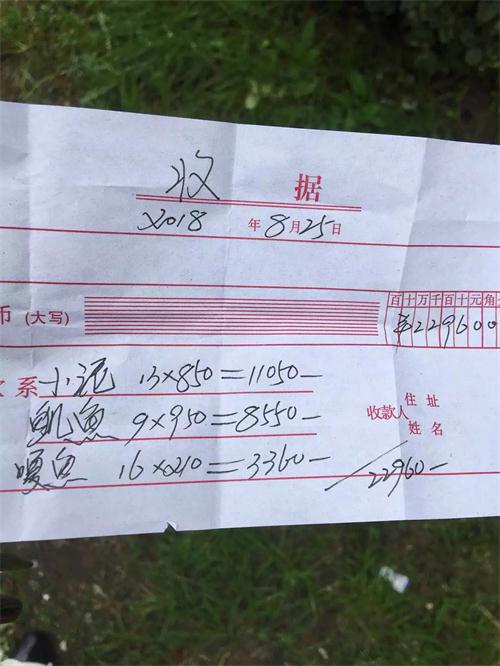 收 据
2018 年 8 月 25 日
百十万千百十元角
币 (大写) ¥2296000
系 小泥 13×850=11050-
鱼 9×950=8550-
嘎鱼 16×210=3360-
住 址
收款人
姓 名
22960-